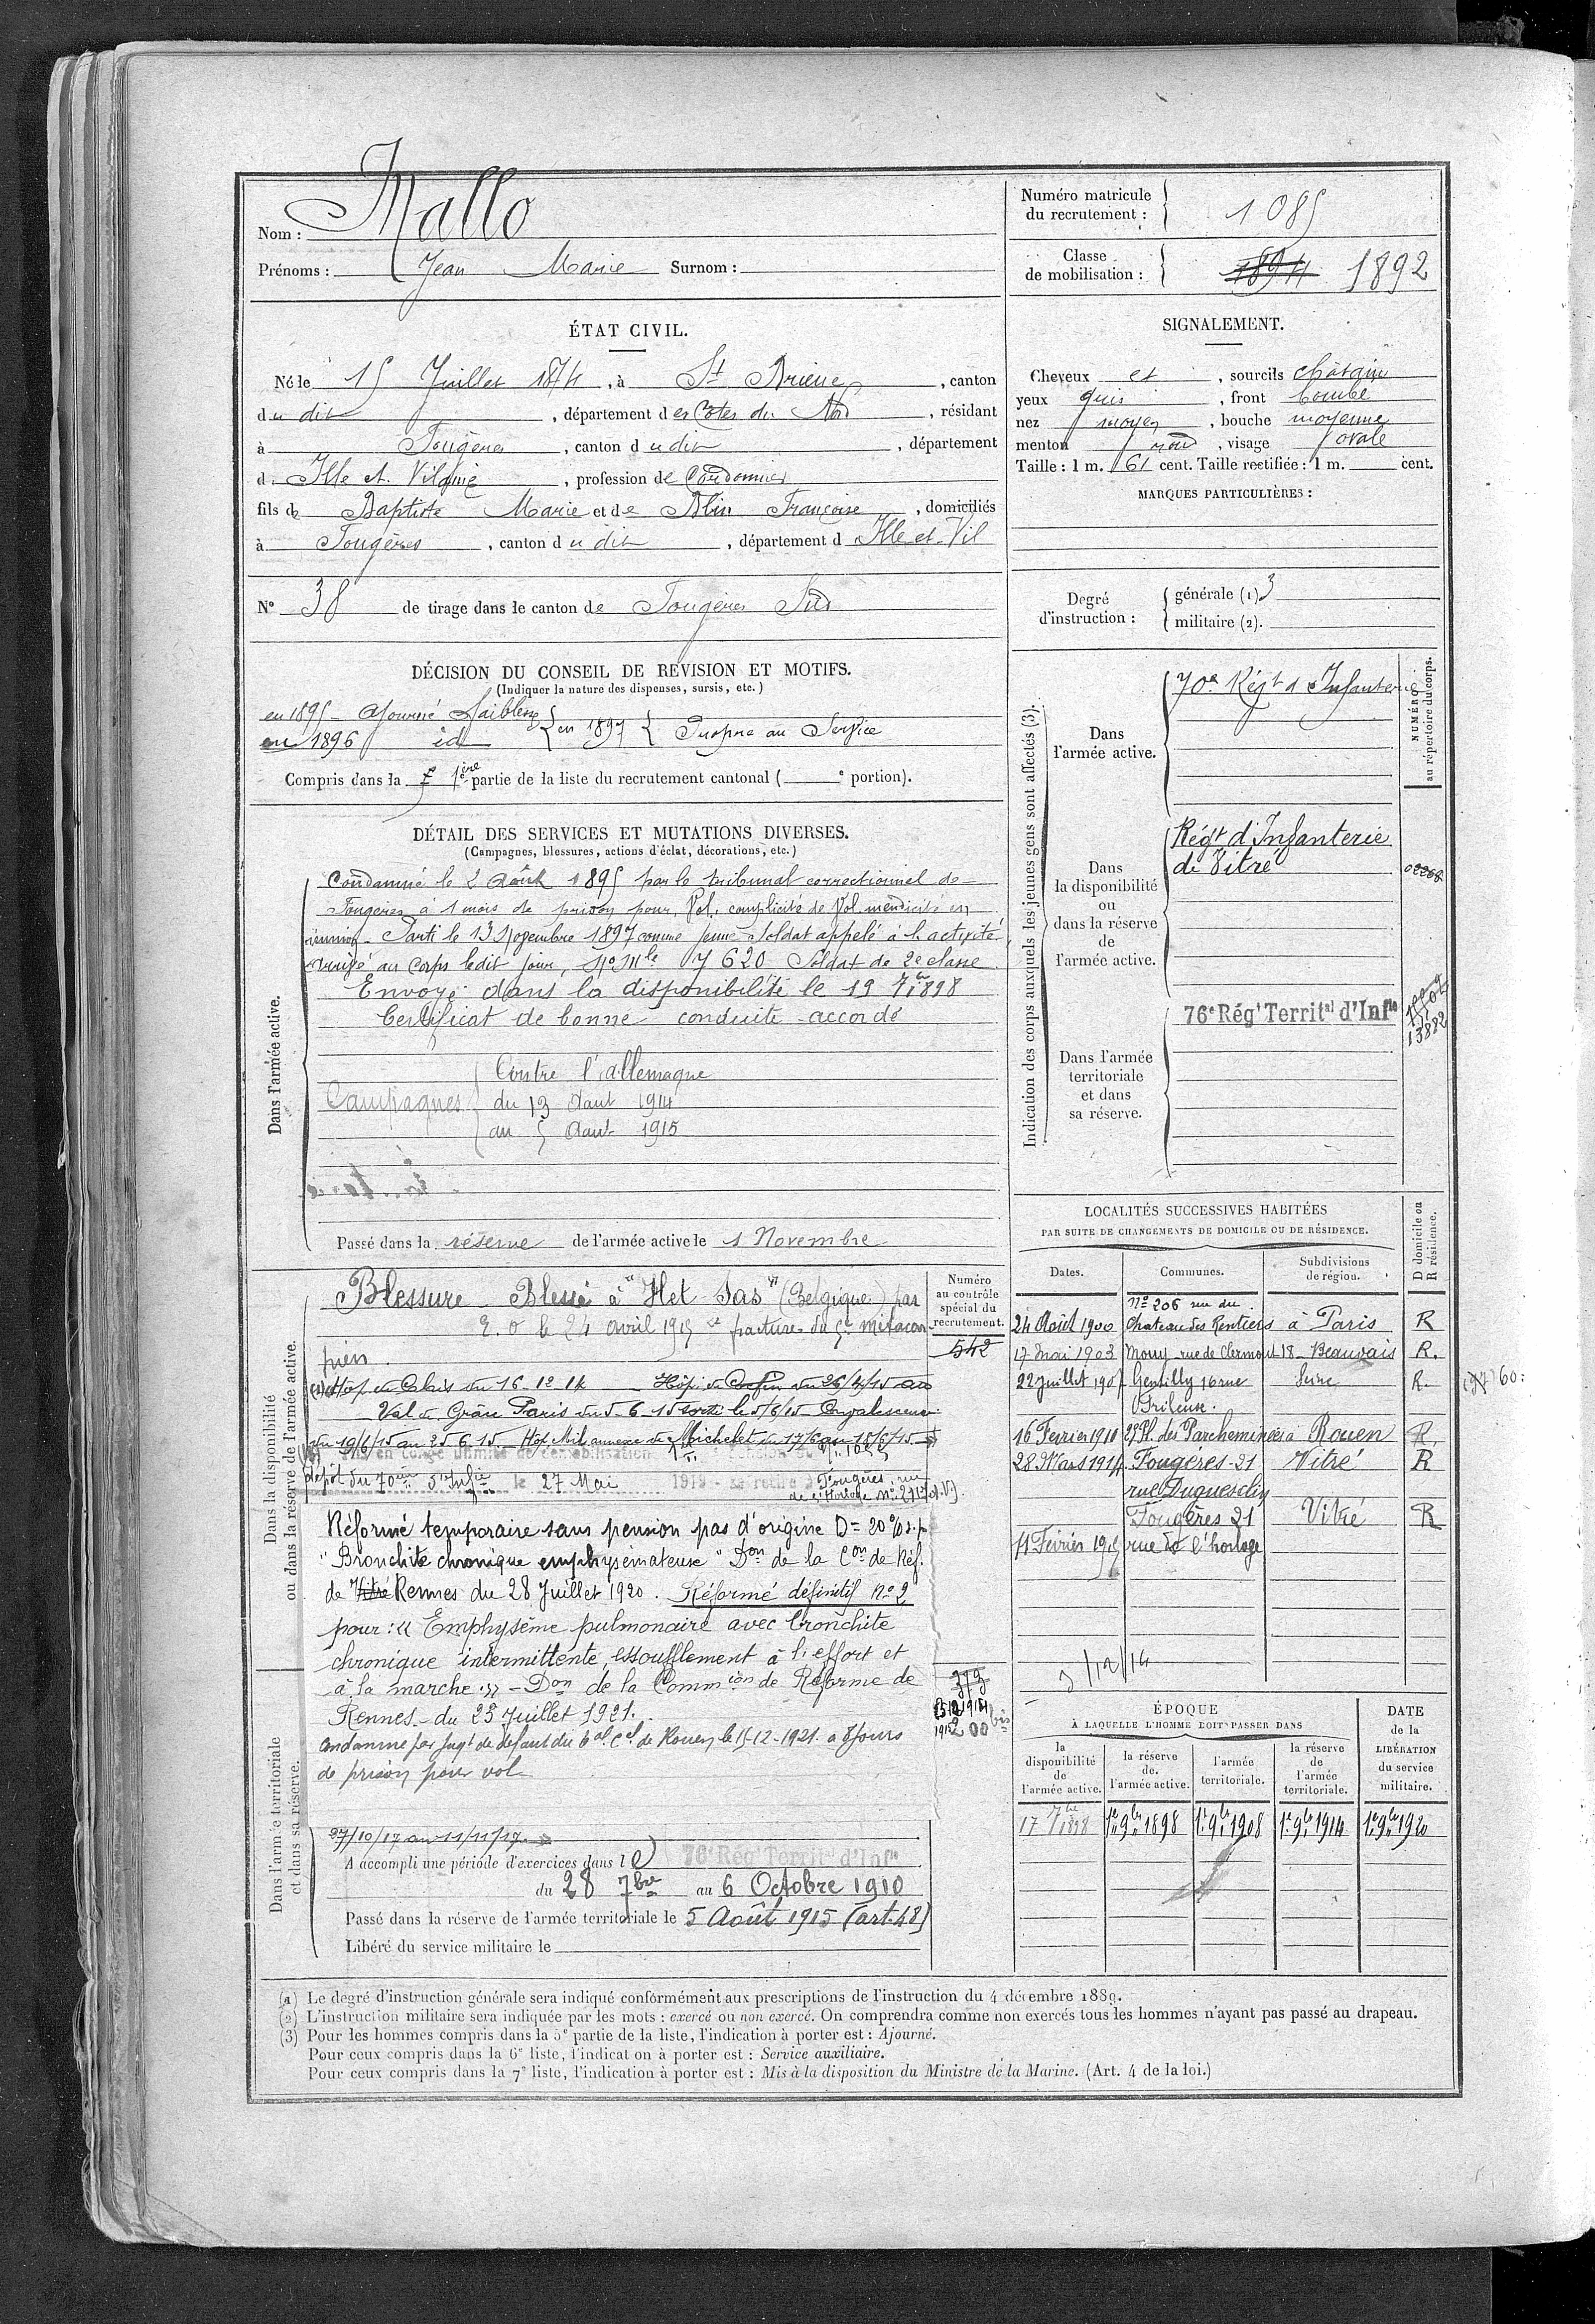 Nom : Mallo
Prénoms : Jean Marie Surnom :
Numéro matricule du recrutement : 1085
Classe de mobilisation : 1894 1892
ÉTAT CIVIL.
Né le 15 Juillet 1874, à St Brieuc, canton
du dit, département des Côtes du Nord, résidant
à Fougères, canton du dit, département
d. Ille et Vilaine, profession de Cordonnier
fils de Baptiste Marie et de Blin Françoise, domiciliés
à Fougères, canton du dit, département d Ille et Vil
N° 38 de tirage dans le canton de Fougères Sud
SIGNALEMENT.
Cheveux et, sourcils châtain
yeux gris, front bombé
nez moyen, bouche moyenne
menton rond, visage ovale
Taille : 1 m. 61 cent. Taille rectifiée : 1 m. cent.
MARQUES PARTICULIÈRES :
Degré d'instruction :
générale (1) 3
militaire (2).
DÉCISION DU CONSEIL DE REVISION ET MOTIFS.
(Indiquer la nature des dispenses, sursis, etc.)
en 1895 - Ajourné faiblesse
en 1896 id
en 1897 Propre au Service
Compris dans la 1ère partie de la liste du recrutement cantonal ( e portion).
DÉTAIL DES SERVICES ET MUTATIONS DIVERSES.
(Campagnes, blessures, actions d'éclat, décorations, etc.)
Dans l'armée active.
Condamné le 2 Août 1895 par le tribunal correctionnel de
Fougères à 1 mois de prison pour Vol, complicité de Vol mendicité en
réunion - Parti le 13 Novembre 1897 comme jeune soldat appelé à l'activité,
Arrivé au Corps ledit jour, No Mle 7620 Soldat de 2e classe.
Envoyé dans la disponibilité le 19 7bre 1898
Certificat de bonne conduite accordé
Campagnes
Contre l'Allemagne
du 13 Aout 1914
au 5 Aout 1915
Passé dans la réserve de l'armée active le 1 Novembre
Indication des corps auxquels les jeunes gens sont affectés (3).
NUMÉRO au répertoire du corps.
Dans l'armée active.
70e Régt d'Infanterie
Dans la disponibilité ou dans la réserve de l'armée active.
Régt d'Infanterie
de Vitré
02268
Dans l'armée territoriale et dans sa réserve.
76e Régt Territal d'Infie
13882
Dans la disponibilité ou dans la réserve de l'armée active.
Numéro au contrôle spécial du recrutement.
542
Blessure - Blessé à "Het-Sas" (Belgique) par
E. O le 24 avril 1915 fracture du 5e métacar
pien
Hop de Calais du 16-12-14
Val de Grâce Paris du 5-6-15 sorti le 5/6/15 Convalescence
du 19/6/15 au 25-6-15 - Hop. Mil annexe de Michelet du 17/6 au 18/6/15
dépôt du 70ème d'Infie le 27 Mai 1919 - se retire à Fougères, rue
de l'Horloge No 21 (I et V).
Réformé temporaire sans pension pas d'origine D = 20 % s.p
"Bronchite chronique emphysémateuse" Don de la Con de Réf.
de Vitré Rennes du 28 Juillet 1920. Réformé définitif No 2
pour : « Emphysème pulmonaire avec bronchite
chronique intermittente, essoufflement à l'effort et
à la marche. » - Don de la Commion de Réforme de
Rennes - du 25 Juillet 1921.
Condamné par Jugt de défaut du tal Cel de Rouen, le 15-12-1921 à 8 jours
de prison pour vol
Dans l'armée territoriale et dans sa réserve.
27/10/17 au 11/11/17
A accompli une période d'exercices dans le 76e Régt Territal d'Infie
du 28 7bre au 6 Octobre 1910
Passé dans la réserve de l'armée territoriale le 5 Août 1915 (art. 48)
Libéré du service militaire le
LOCALITÉS SUCCESSIVES HABITÉES
PAR SUITE DE CHANGEMENTS DE DOMICILE OU DE RÉSIDENCE.
Dates. Communes. Subdivisions de région. D domicile ou R résidence.
24 Août 1900 No 206 rue du Chateau des Rentiers à Paris R
17 Mai 1903 Mouy rue de Clermont 18 - Beauvais R.
22 Juillet 190 Gentilly Seine R.
16 Février 1910 Pl. du Parcheminier à Rouen R
28 Mars 1914 Fougères - 21 rue Duguesclin Vitré R
11 Février 1915 Fougères 21 rue de l'horloge Vitré R
3/12/14
ÉPOQUE
À LAQUELLE L'HOMME DOIT PASSER DANS
DATE de la LIBÉRATION du service militaire.
la disponibilité de l'armée active. la réserve de l'armée active. l'armée territoriale. la réserve de l'armée territoriale.
17 7bre 1898 1er 9bre 1898 1er 9bre 1908 1er 9bre 1914 1er 9bre 1920
(1) Le degré d'instruction générale sera indiqué conformément aux prescriptions de l'instruction du 4 décembre 1889.
(2) L'instruction militaire sera indiquée par les mots : exercé ou non exercé. On comprendra comme non exercés tous les hommes n'ayant pas passé au drapeau.
(3) Pour les hommes compris dans la 5e partie de la liste, l'indication à porter est : Ajourné.
Pour ceux compris dans la 6e liste, l'indication à porter est : Service auxiliaire.
Pour ceux compris dans la 7e liste, l'indication à porter est : Mis à la disposition du Ministre de la Marine. (Art. 4 de la loi.)